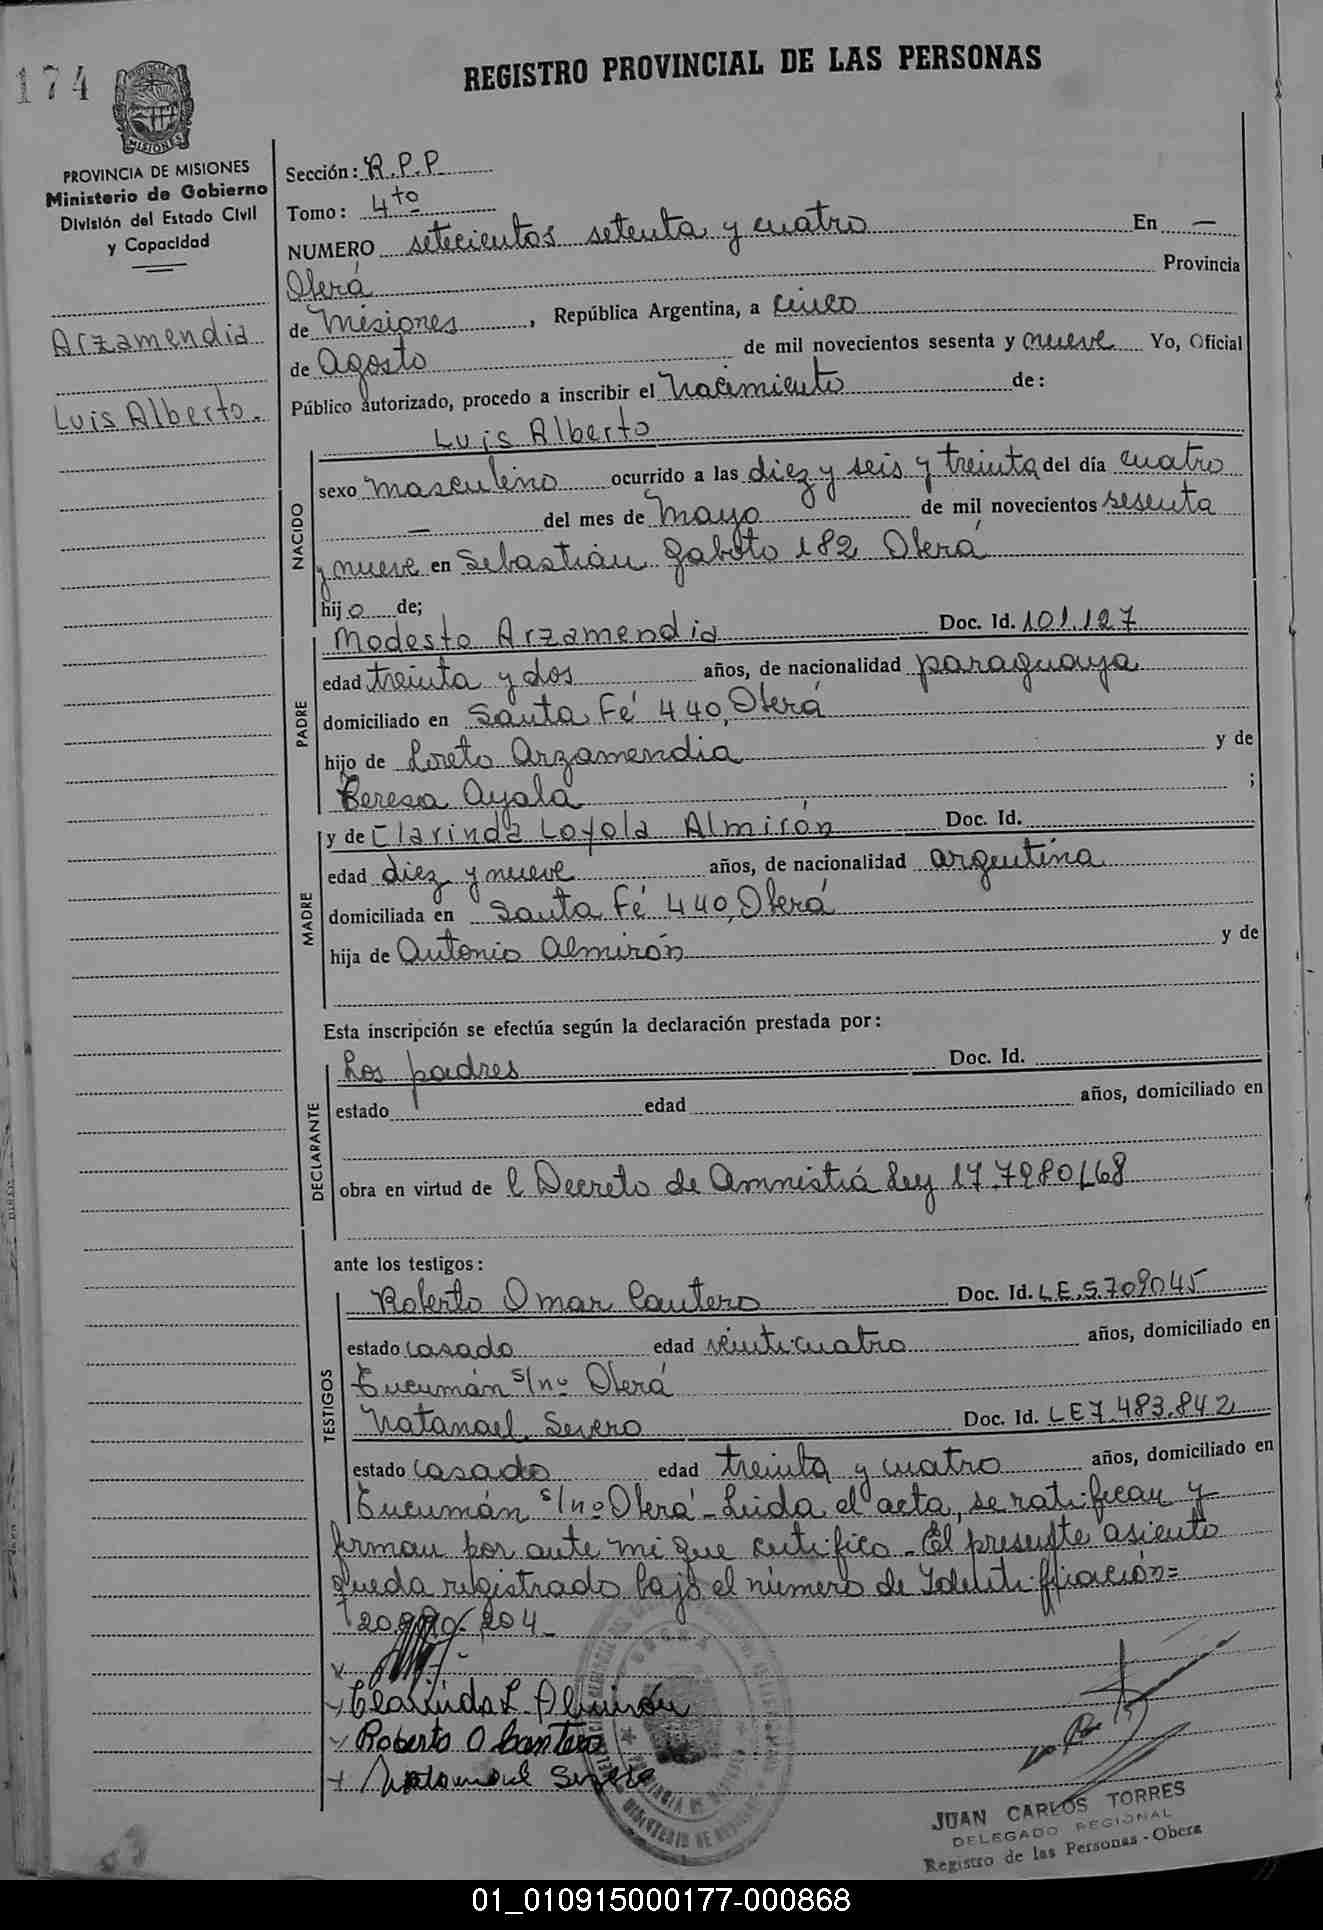 174
REGISTRO PROVINCIAL DE LAS PERSONAS
MISIONES
PROVINCIA DE MISIONES
Ministerio de Gobierno
División del Estado Civil
y Capacidad
Arzamendia
Luis Alberto.
Sección: R.P.P
Tomo: 4to
NUMERO setecientos setenta y cuatro En —
Oberá Provincia
de Misiones, República Argentina, a cinco
de Agosto de mil novecientos sesenta y nueve Yo, Oficial
Público autorizado, procedo a inscribir el Nacimiento de:
Luis Alberto
NACIDO
sexo masculino ocurrido a las diez y seis y treinta del día cuatro
— del mes de Mayo de mil novecientos sesenta
y nueve en Sebastián Gaboto 182 Oberá
hijo de;
PADRE
Modesto Arzamendia Doc. Id. 101.127
edad treinta y dos años, de nacionalidad paraguaya
domiciliado en Santa Fé 440, Oberá
hijo de Loreto Arzamendia y de
Teresa Ayala ;
MADRE
y de Clarinda Loyola Almirón Doc. Id.
edad diez y nueve años, de nacionalidad argentina
domiciliada en Santa Fé 440, Oberá
hija de Antonio Almirón y de
Esta inscripción se efectúa según la declaración prestada por:
DECLARANTE
Los padres Doc. Id.
estado edad años, domiciliado en
obra en virtud de l Decreto de Amnistiá Ley 17.7980/68
ante los testigos:
TESTIGOS
Roberto Omar Cantero Doc. Id. L.E.5.709045
estado casado edad veinticuatro años, domiciliado en
Tucumán s/nº Oberá
Natanael Severo Doc. Id. LE7.483.842
estado casado edad treinta y cuatro años, domiciliado en
Tucumán s/nº Oberá - Leida el acta, se ratifican y
firman por ante mi que certifico - El presente asiento
queda registrado bajo el número de Identificación=
204 -
x
Clarinda L. Almirón
Roberto O Cantero
+ Natanael Severo
JUAN CARLOS TORRES
DELEGADO REGIONAL
Registro de las Personas - Obera
01_010915000177-000868